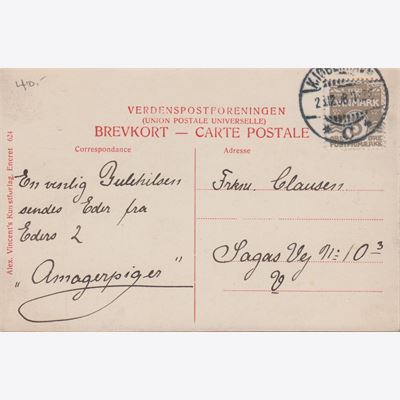 40.-
KJØBENHAVN
DANMARK
3
ØRE
POSTFRIMÆRKE
VERDENSPOSTFORENINGEN
(UNION POSTALE UNIVERSELLE)
BREVKORT — CARTE POSTALE
Correspondance
Adresse
Alex. Vincent's Kunstforlag. Eneret 624
En venlig Julehilsen
sendes Eder fra
Eders 2
„Amagerpiger"
Frkn. Clausen
Sagas Vej No: 10 3
V